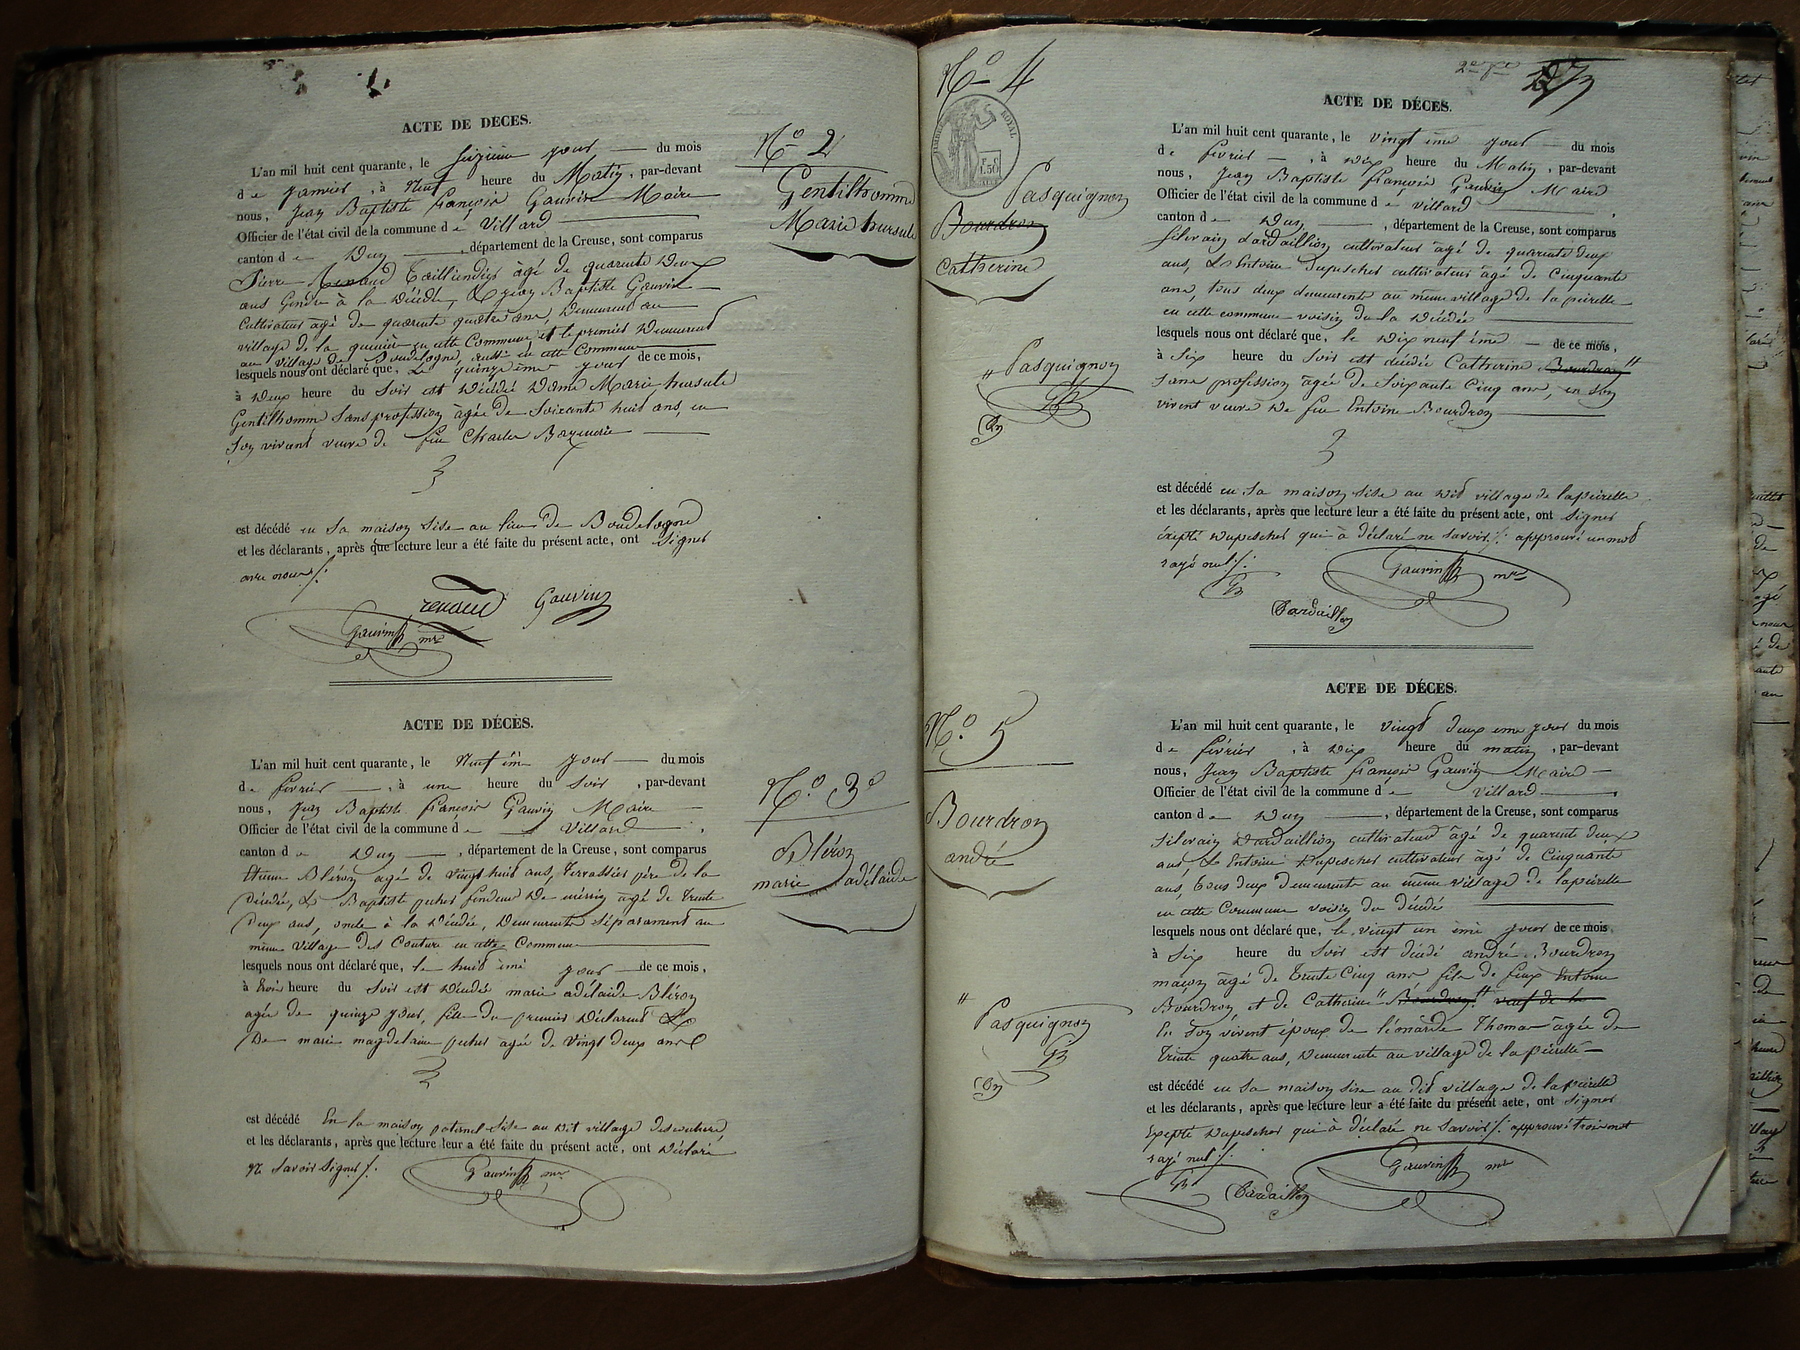 ACTE DE DÉCÈS.
L'an mil huit cent quarante, le seizieme jour du mois
de Janvier, à Neuf heure du Matin, par-devant
nous, Jean Baptiste françois Gauvin Maire
Officier de l'état civil de la commune de Villard
canton de Dun, département de la Creuse, sont comparus
Pierre Renaud âgé de quarente Deux
ans Gendre à la Décédée, & Jean Baptiste Gauvin
Cultivateur âgé de quarente quatre ans, Demeurent au
village de la en cette Commune et le premier Demeurent
au Village de Boudelogne, aussi en cette Commune
lesquels nous ont déclaré que, Le quinzeieme jour de ce mois,
à Deux heure du Soir est Décédée Dame Marie hursule
Gentilhomme Sans profession âgée de Soixante huit ans, en
Son vivent veuve de feu Charles
est décédé en Sa maison Sise au lieu de Boudelogne
et les déclarants, après que lecture leur a été faite du présent acte, ont Signer
avec nous /.
renaud Gauvin
Gauvin mre
N° 2
Gentilhomme
Marie hursule
ACTE DE DÉCÈS.
L'an mil huit cent quarante, le Neuf ème jour du mois
de fevrier, à une heure du Soir, par-devant
nous, Jean Baptiste françois Gauvin Maire
Officier de l'état civil de la commune de Villard,
canton de Dun, département de la Creuse, sont comparus
Etienne Bléron agé de vingt huit ans, Terrassier père de la
Décédée, & Baptiste fendeur De mérein âgé de Trente
Deux ans, oncle à la Décédée, Demeurents Séparament au
même Village Des Couture en cette Commune
lesquels nous ont déclaré que, le huit ème jour de ce mois,
à trois heure du Soir est Décédée marie adélaide Bléron
agée de quinze jours, fille du premier Déclarent &
De marie magdelaine agée de Vingt deux ans
est décédé En la maison paternel Sise au Dit village
et les déclarants, après que lecture leur a été faite du présent acte, ont Déclaré
ne Savoir Signer /.
Gauvin mre
N° 3e
Bléron
marie adélaide
N° 4
TIMBRE ROYAL
1.50
Pasquignon
Bourdron
Catherine
" Pasquignon
GB
ACTE DE DÉCÈS.
L'an mil huit cent quarante, le vingt ème jour du mois
de fevrier, à Dix heure du Matin, par-devant
nous, Jean Baptiste françois Gauvin Maire
Officier de l'état civil de la commune de Villard,
canton de Dun, département de la Creuse, sont comparus
Silevain dardaillion cultivateur âgé de quarente deux
ans, & Entoine Dupeschet cultivateur âgé de Cinquante
ans, tous deux demeurents au même village de la peirelle
en cette commune voisin de la Décédée
lesquels nous ont déclaré que, le Dix neuf ème de ce mois,
à Six heure du Soir est décédée Catherine Bourdron "
Sans profession âgée de Soixante Cinq ans, en Son
vivent veuve de feu Entoine Bourdron
est décédé en Sa maison Sise au Dit village de lapeirelle
et les déclarants, après que lecture leur a été faite du présent acte, ont Signer
éxepté Dupeschet qui à déclaré ne Savoir /. approuvé un mot
rayé nul /.
GB
Gauvin mre
Dardaillon
N° 5
Bourdron
andré
Pasquignon
GB
ACTE DE DÉCÈS.
L'an mil huit cent quarante, le vingt deux eme jour du mois
de fevrier, à Dix heure du matin, par-devant
nous, Jean Baptiste françois Gauvin Maire
Officier de l'état civil de la commune de Villard,
canton de Dun, département de la Creuse, sont comparus
Silevain Dardaillion cultivateur âgé de quarente deux
ans, & Entoine Dupeschet cultivateur âgé de Cinquante
ans, tous deux Demeurents au même village de lapeirelle
en cette Commune voisin du décédé
lesquels nous ont déclaré que, le vingt un ème jour de ce mois
à Six heure du Soir est décédé andré Bourdron
maçon âgé de Trente Cinq ans fils de feux Entoine
Bourdron, et de Catherine " Bourdron " veuf de la
En Son vivent époux de léonarde Thomas âgée de
Trente quatre ans, Demeurente au village de la peirelle
est décédé en Sa maison Sise au dit village de la peirelle
et les déclarants, après que lecture leur a été faite du présent acte, ont Signer
Exepté Dupeschet qui à déclaré ne Savoir /. approuvé trois mot
rayé nul /.
GB
Dardaillon
Gauvin mre